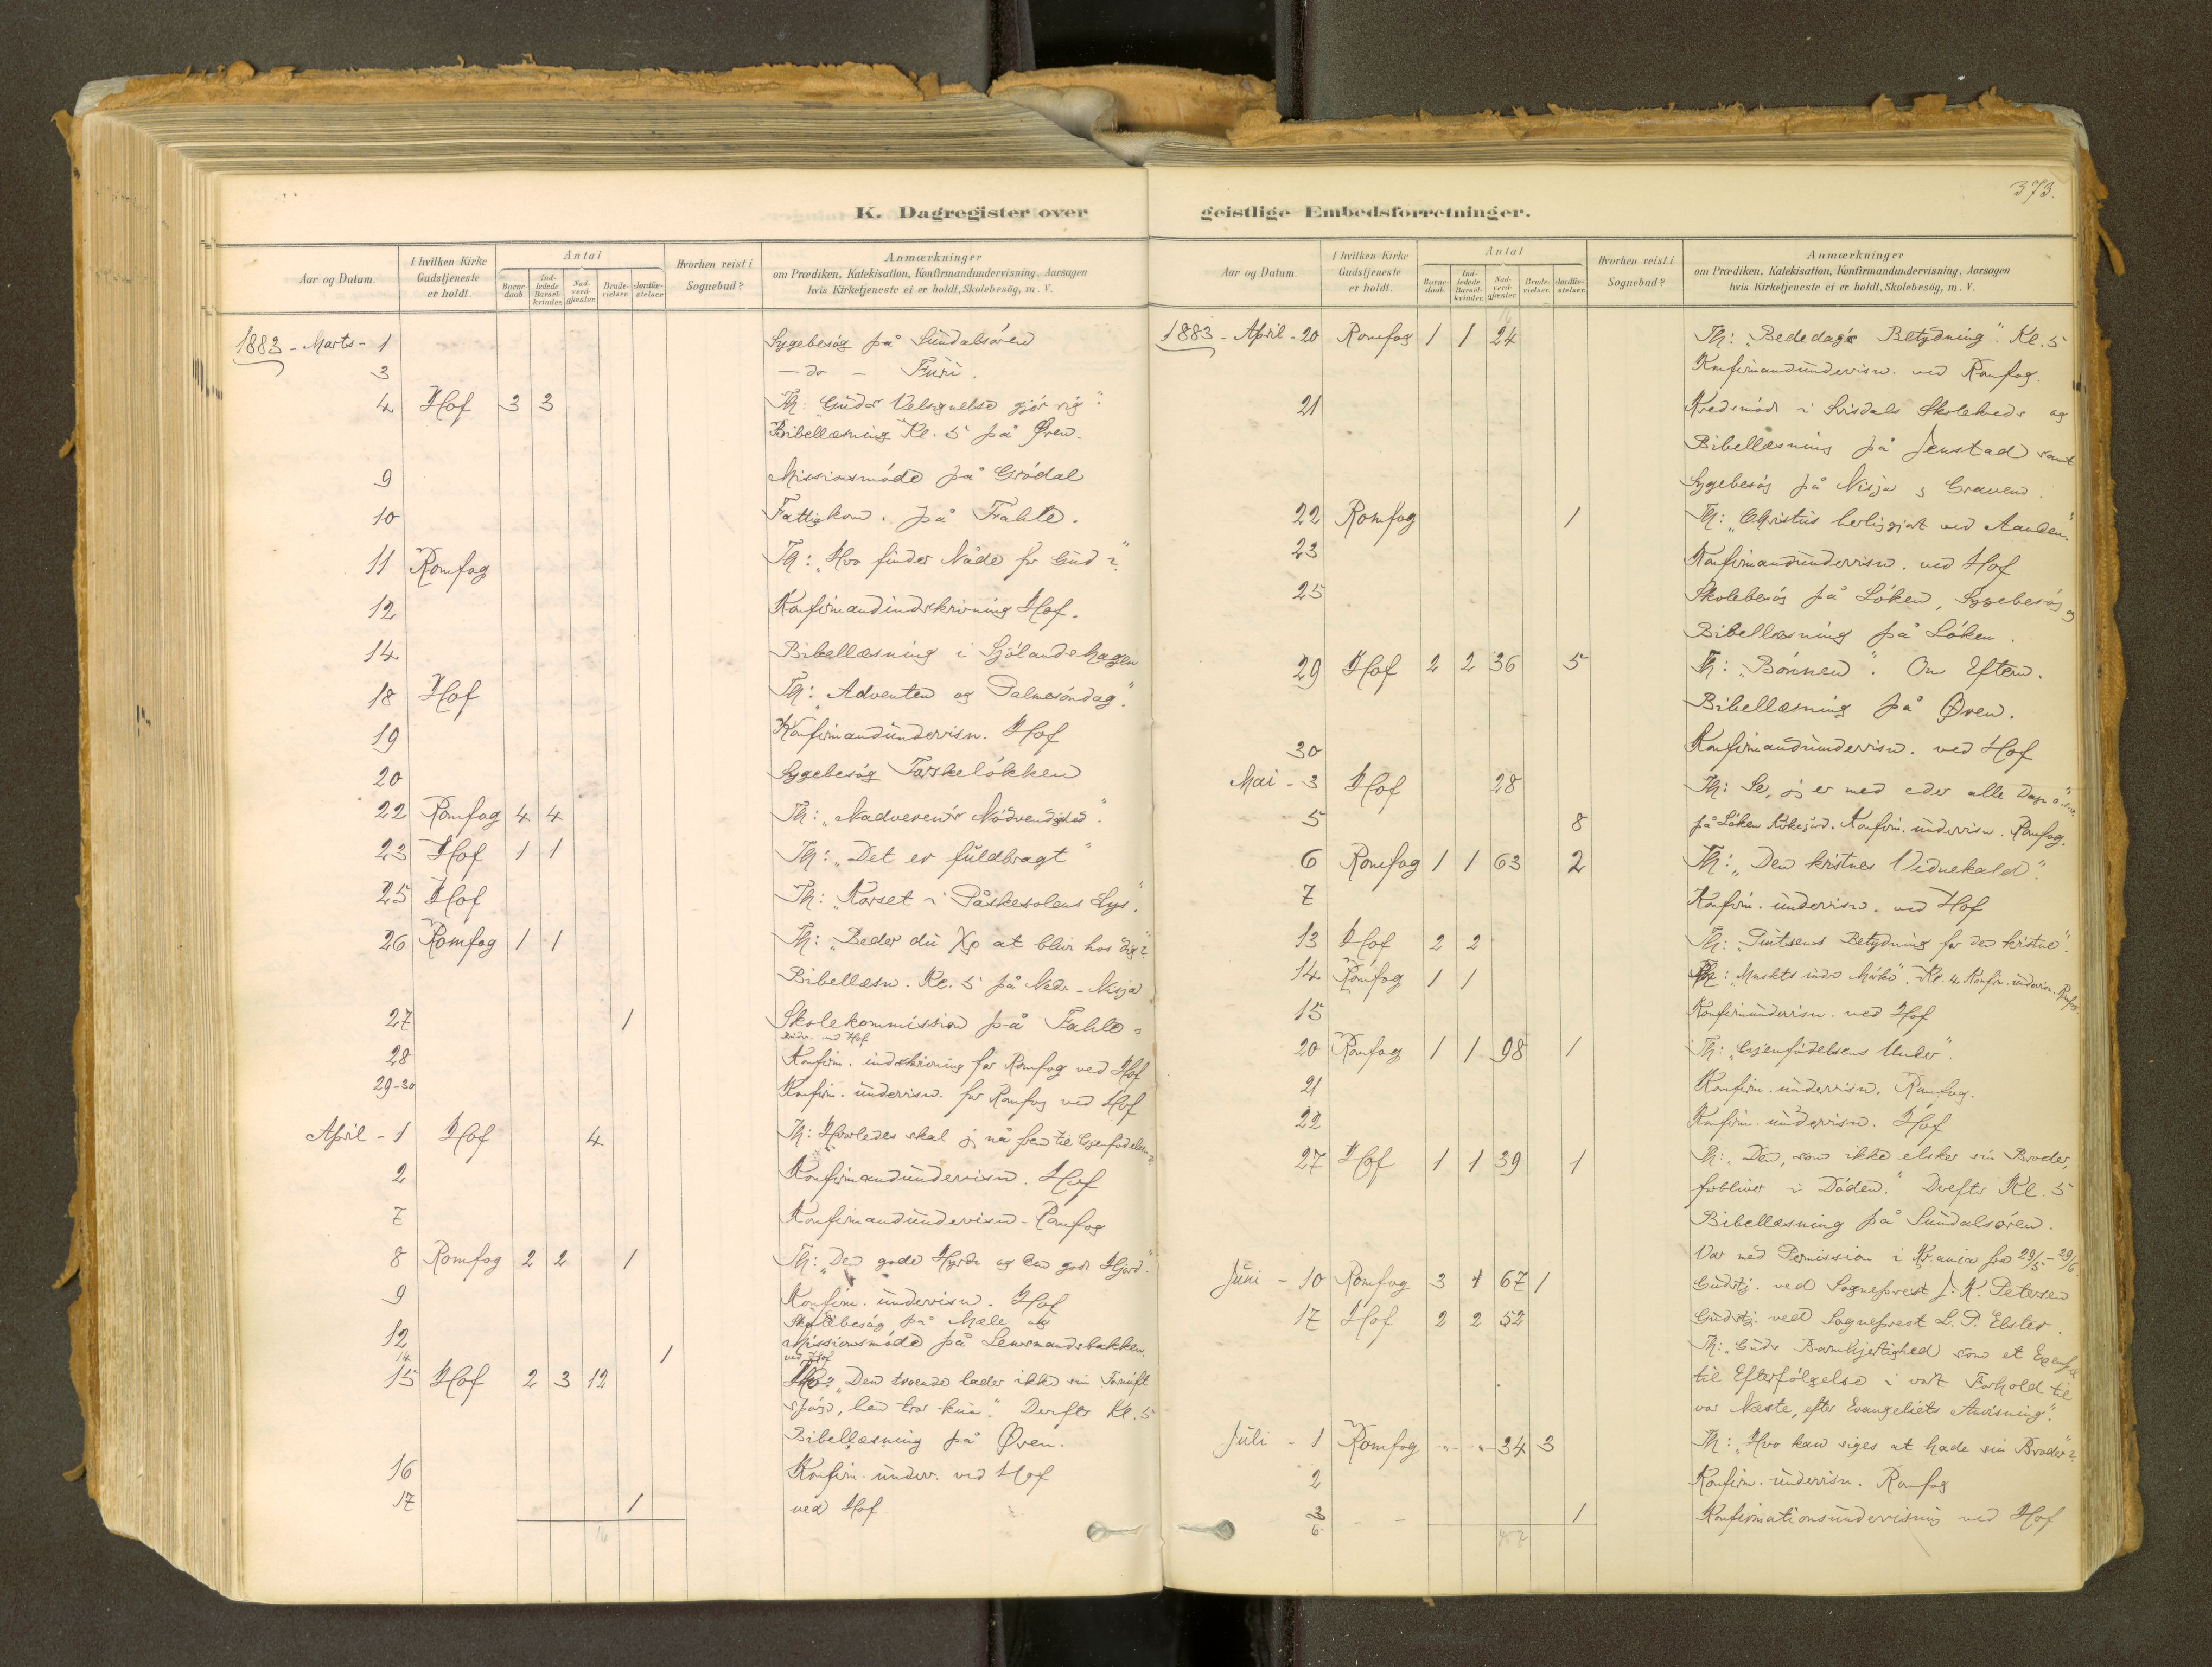 373.
K. Dagregister over
geistlige Embedsforretninger.
Aar og Datum.
I hvilken Kirke Gudstjeneste er holdt.
Antal
Barnedaab.
Indledede Barselkvinder.
Nadverdgjæster.
Brudevielser.
Jordfæstelser.
Hvorhen reist i Sognebud?
Anmærkninger
om Prædiken, Katekisation, Konfirmandundervisning, Aarsagen
hvis Kirketjeneste ei er holdt, Skolebesög, m. V.
1883 - Marts - 1 Sygebesög på Sundalsören
3 - do - Furu.
4 Hof 3 3 Th: "Guds Velsignelse gjör rig".
Bibellæsning Kl. 5 på Øren.
9 Missionsmöde på Grödal
10 Fattigkom. på Fahle.
11 Romfog Th: "Hvo finder Nåde for Gud?"
12 Konfirmandindskrivning Hof.
14 Bibellæsning i Sjölandshagen
18 Hof Th: "Adventen og Palmesöndag".
19 Konfirmandundervisn. Hof
20 Sygebesög Torskelökken
22 Romfog 4 4 Th: "Nadveren's Nödvendighed".
23 Hof 1 1 Th: "Det er fuldbragt"
25 Hof Th: "Korset i Påskesolens Lys".
26 Romfog 1 1 Th: "Beder du Xp at blive hos dig?"
Bibellæsn. Kl. 5 på Nedr-Nisja
27 1 Skolekommission på Fahle
ved Hof
28 Konfirm. indskrivning for Romfog ved Hof
29-30 Konfirm. undervisn. for Romfog ved Hof
April - 1 Hof 4 Th: "Hvorledes skal jeg nå frem til Gjenfödelsen?"
2 Konfirmandundervisn. Hof
7 Konfirmandundervisn - Romfog
8 Romfog 2 2 1 Th: "Den gode Hyrde og den gode Hjord".
9 Konfirm. undervisn. Hof
Skolebesög på Mæle og
12 Missionsmöde på Lensmandsbakken.
14 1 ved Hof
15 Hof 2 3 12 Th: "Den troende lader ikke sin Fornuft
spörge, han tror kun." Derefter Kl. 5
Bibellæsning på Øren.
16 Konfirm. underv. ved Hof
17 1 ved Hof
16
Aar og Datum.
I hvilken Kirke Gudstjeneste er holdt.
Antal
Barnedaab.
Indledede Barselkvinder.
Nadverdgjæster.
Brudevielser.
Jordfæstelser.
Hvorhen reist i Sognebud?
Anmærkninger
om Prædiken, Katekisation, Konfirmandundervisning, Aarsagen
hvis Kirketjeneste ei er holdt, Skolebesög, m. V.
1883 - April - 20 Romfog 1 1 24 Th: "Bededag's Betydning". Kl. 5
Konfirmandundervisn. ved Romfog.
21 Kredsmöde i Svisdals Skolekreds og
Bibellæsning på Jenstad samt
Sygebesög på Nisja og Graven.
22 Romfog 1 Th: "Christus herliggjort ved Aanden".
23 Konfirmandundervisn. ved Hof
25 Skolebesög på Löken, Sygebesög og
Bibellæsning på Löken.
29 Hof 2 2 36 5 Th: "Bönnen". Om Efterm.
Bibellæsning på Øren.
30 Konfirmandundervisn. ved Hof
Mai - 3 Hof 28 Th: Se, jeg er med eder alle Dage o.s.v.
5 8 på Löken Kirkejord. Konfirm. undervisn. Romfog.
6 Romfog 1 1 63 2 Th: "Den kristnes Vidnekald".
7 Konfirm. undervisn. ved Hof
13 Hof 2 2 Th: "Pintsens Betydning for den kristne".
14 Romfog 1 1 Th: "Mærkets indre Mörke". Kl. 4 Konfirm. undervisn. Romfog
15 Konfirmundervisn. ved Hof
20 Romfog 1 1 98 1 Th: "Gjenfödelsens Under".
21 Konfirm. undervisn. Romfog.
22 Konfirm. undervisn. Hof
27 Hof 1 1 39 1 Th: "Den, som ikke elsker sin Broder,
forbliver i Döden." Derefter Kl. 5
Bibellæsning på Sundalsören.
Var med Permission i Kr.ania fra 29/5 - 29/6.
Juni - 10 Romfog 3 4 67 1 Gudstj. ved Sogneprest J. K. Petersen
17 Hof 2 2 52 Gudstj. ved Sogneprest L. P. Elster.
Th: "Guds Barmhjertighed som et Exempel
til Efterfölgelse i vort Forhold til
vor Næste, efter Evangeliets Anvisning".
Juli - 1 Romfog - " - " - 34 3 Th: "Hvo kan siges at hade sin Broder"?
2 Konfirm. undervisn. Romfog
3 - - 1 Konfirmationsundervisning ved Hof
6